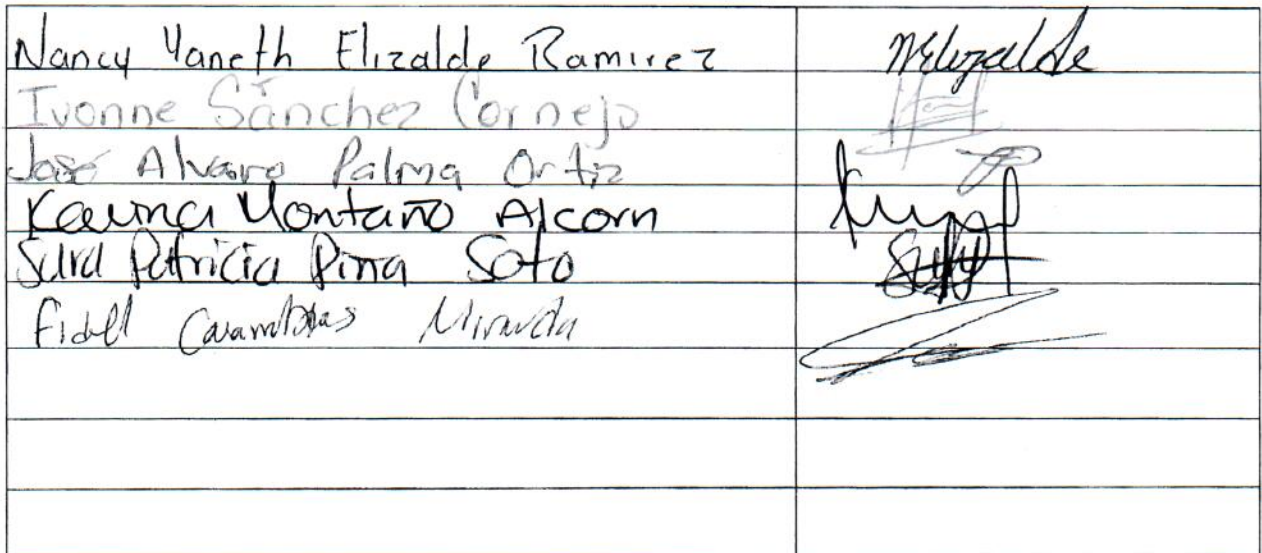 Nancy Yaneth Elizalde Ramirez NElizalde
Ivonne Sánchez Cornejo
José Alvaro Palma Ortiz
Karina Montaño Alcorn
Sara Patricia Pina Soto
Fidel Miranda